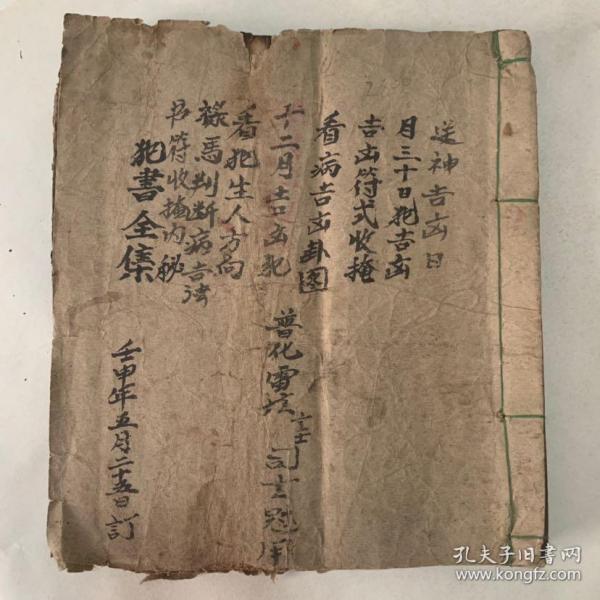 送神吉凶日
月三十日犯吉凶
吉凶符式收掩
看病吉凶卦图
十二月吉凶犯
看犯生人方向
禄馬判断病吉法
符收掩内秘
犯書全集
普化雷坛
壬申年五月二十五日訂
孔夫子旧书网
www.kongfz.com